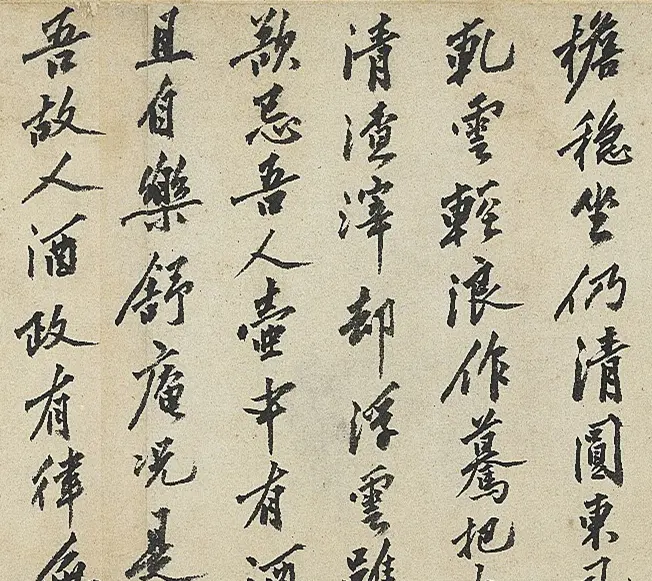 檐穩坐仍清圓東
軋雲輕浪作驀把
清渣滓却浮雲雖
歆忌吾人壺中有酒
且自樂舒庵况是
吾故人酒政有律